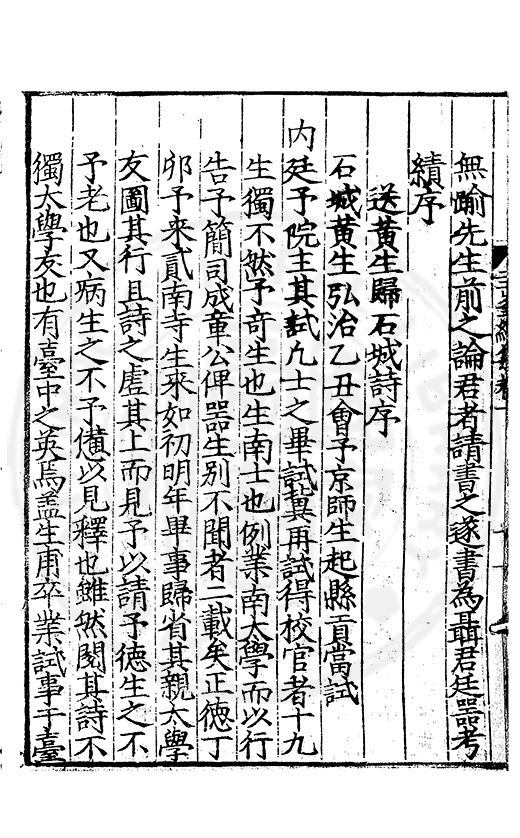 無踰先生前之論君者請書之遂書為聶君廷器考
績序
送黄生歸石城詩序
石城黄生弘治乙丑會予京師生起縣貢當試
内廷予院主其試凢士之畢試冀再試得校官者十九
生獨不然予竒生也生南士也例業南太學而以行
告予簡司成章公俾器生别不聞者二載矣正德丁
夘予来貳南寺生来如初明年畢事歸省其親太學
友圖其行且詩之虚其上而見予以請予德生之不
予老也又病生之不予僃以見釋也雖然閱其詩不
獨太學友也有臺中之英焉盖生甫卒業試事于臺